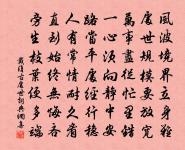 風波境界立身難
處世規模要放寬
萬事盡從忙裏錯
一心須向靜中安
路當平處經行穩
人有常情耐久看
直到始終無悔吝
旁生枝葉便多端
戴復古處世